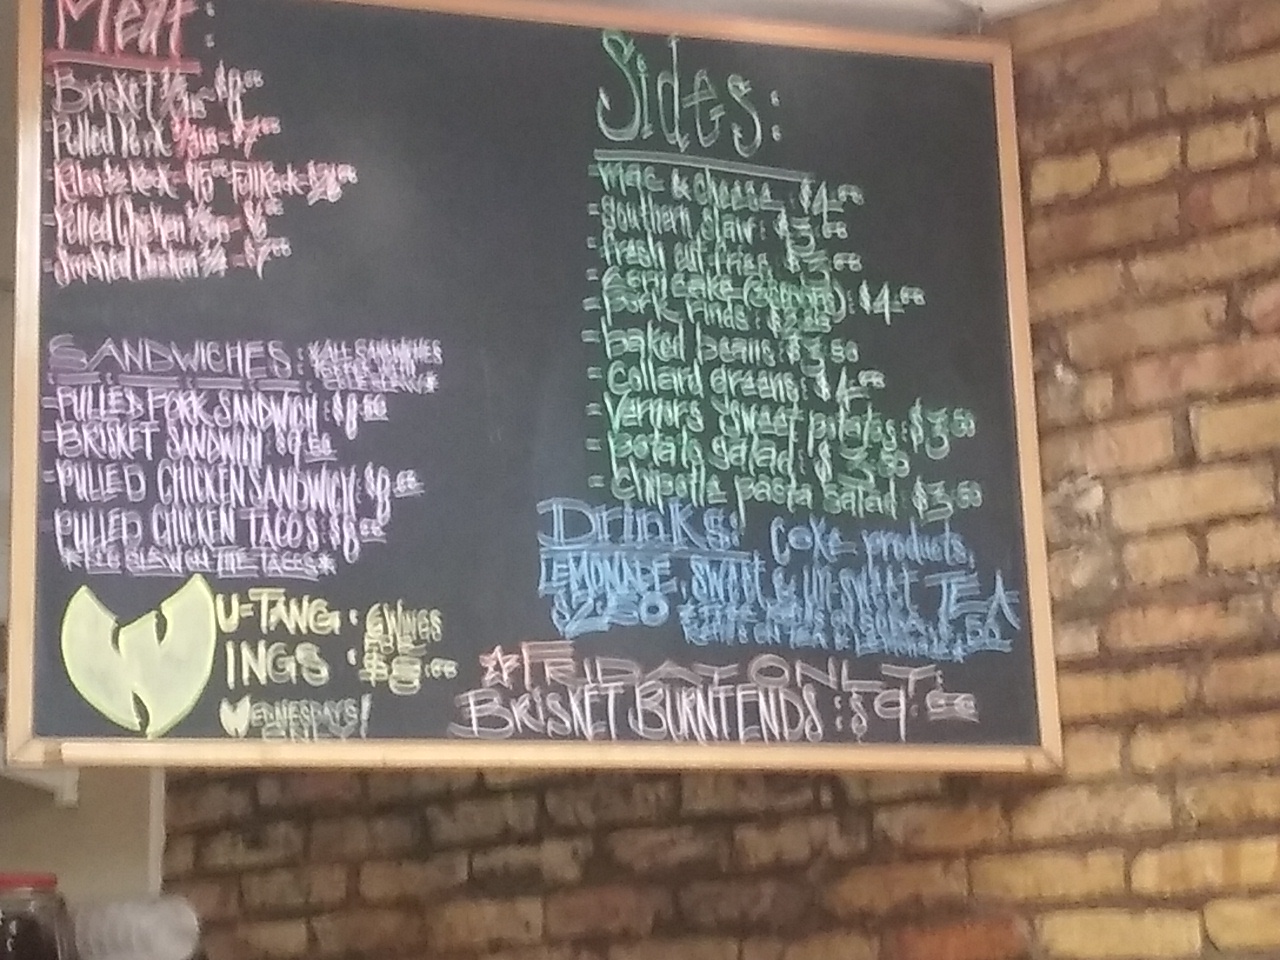 Meat:
Brisket 1/2 lb - $9.00
Pulled Pork 1/2 lb - $7.00
Ribs 1/2 Rack - $15.00 Full Rack - $28.00
Pulled Chicken 1/2 lb - $6.00
Smoked Chicken - $7.00
SANDWICHES: *ALL SANDWICHES
COLESLAW*
- PULLED PORK SANDWICH: $8.50
- BRISKET SANDWICH: $9.50
- PULLED CHICKEN SANDWICH: $8
- PULLED CHICKEN TACOS: $8
SLAW ON THE TACOS*
W U-TANG: 6 WINGS
INGS: $8.00
WEDNESDAYS!
ONLY!
Sides:
- mac & cheese: $4.00
- southern slaw: $3.00
- fresh cut fries: $3.00
- corn cake (2 pieces): $4.00
- pork rinds: $2.25
- baked beans: $3.50
- collard greens: $4.00
- Vernors sweet potatoes: $3.50
- potato salad: $3.50
- chipotle pasta salad: $3.50
Drinks: Coke products,
LEMONADE, SWEET & UN-SWEET TEA
$2.50
REFILLS ON TEA & LEMONADE .50
☆FRIDAY ONLY:
BRISKET BURNT ENDS: $9.00